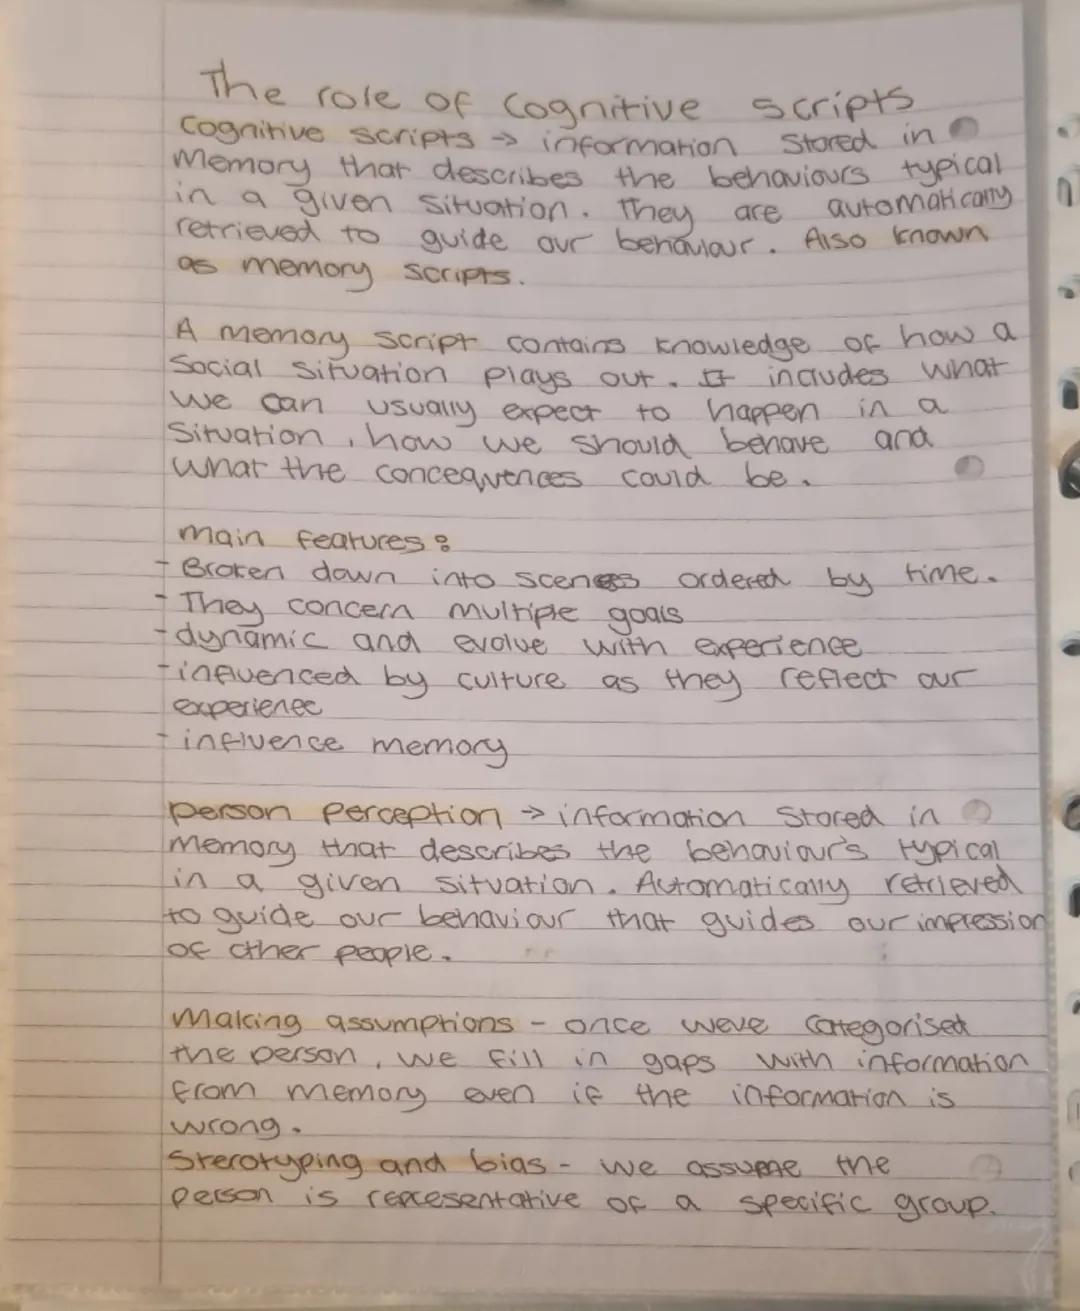 The role of cognitive scripts
Cognitive scripts → information stored in
memory that describes the behaviours typical
in a given situation. They are automatically
retrieved to guide our behaviour. Also known
as memory scripts.
A memory script contains knowledge of how a
social situation plays out. It includes what
we can usually expect to happen in a
situation, how we should behave and
what the concequences could be.
main features:
- Broken down into scenes ordered by time.
- They concern multiple goals
- dynamic and evolve with experience
- influenced by culture as they reflect our
experience
- influence memory
person perception → information stored in
memory that describes the behaviour's typical
in a given situation. Automatically retrieved
to guide our behaviour that guides our impression
of other people.
Making assumptions - once weve categorised
the person, we fill in gaps with information
from memory even if the information is
wrong.
Sterotyping and bias - we assume the
person is representative of a specific group.